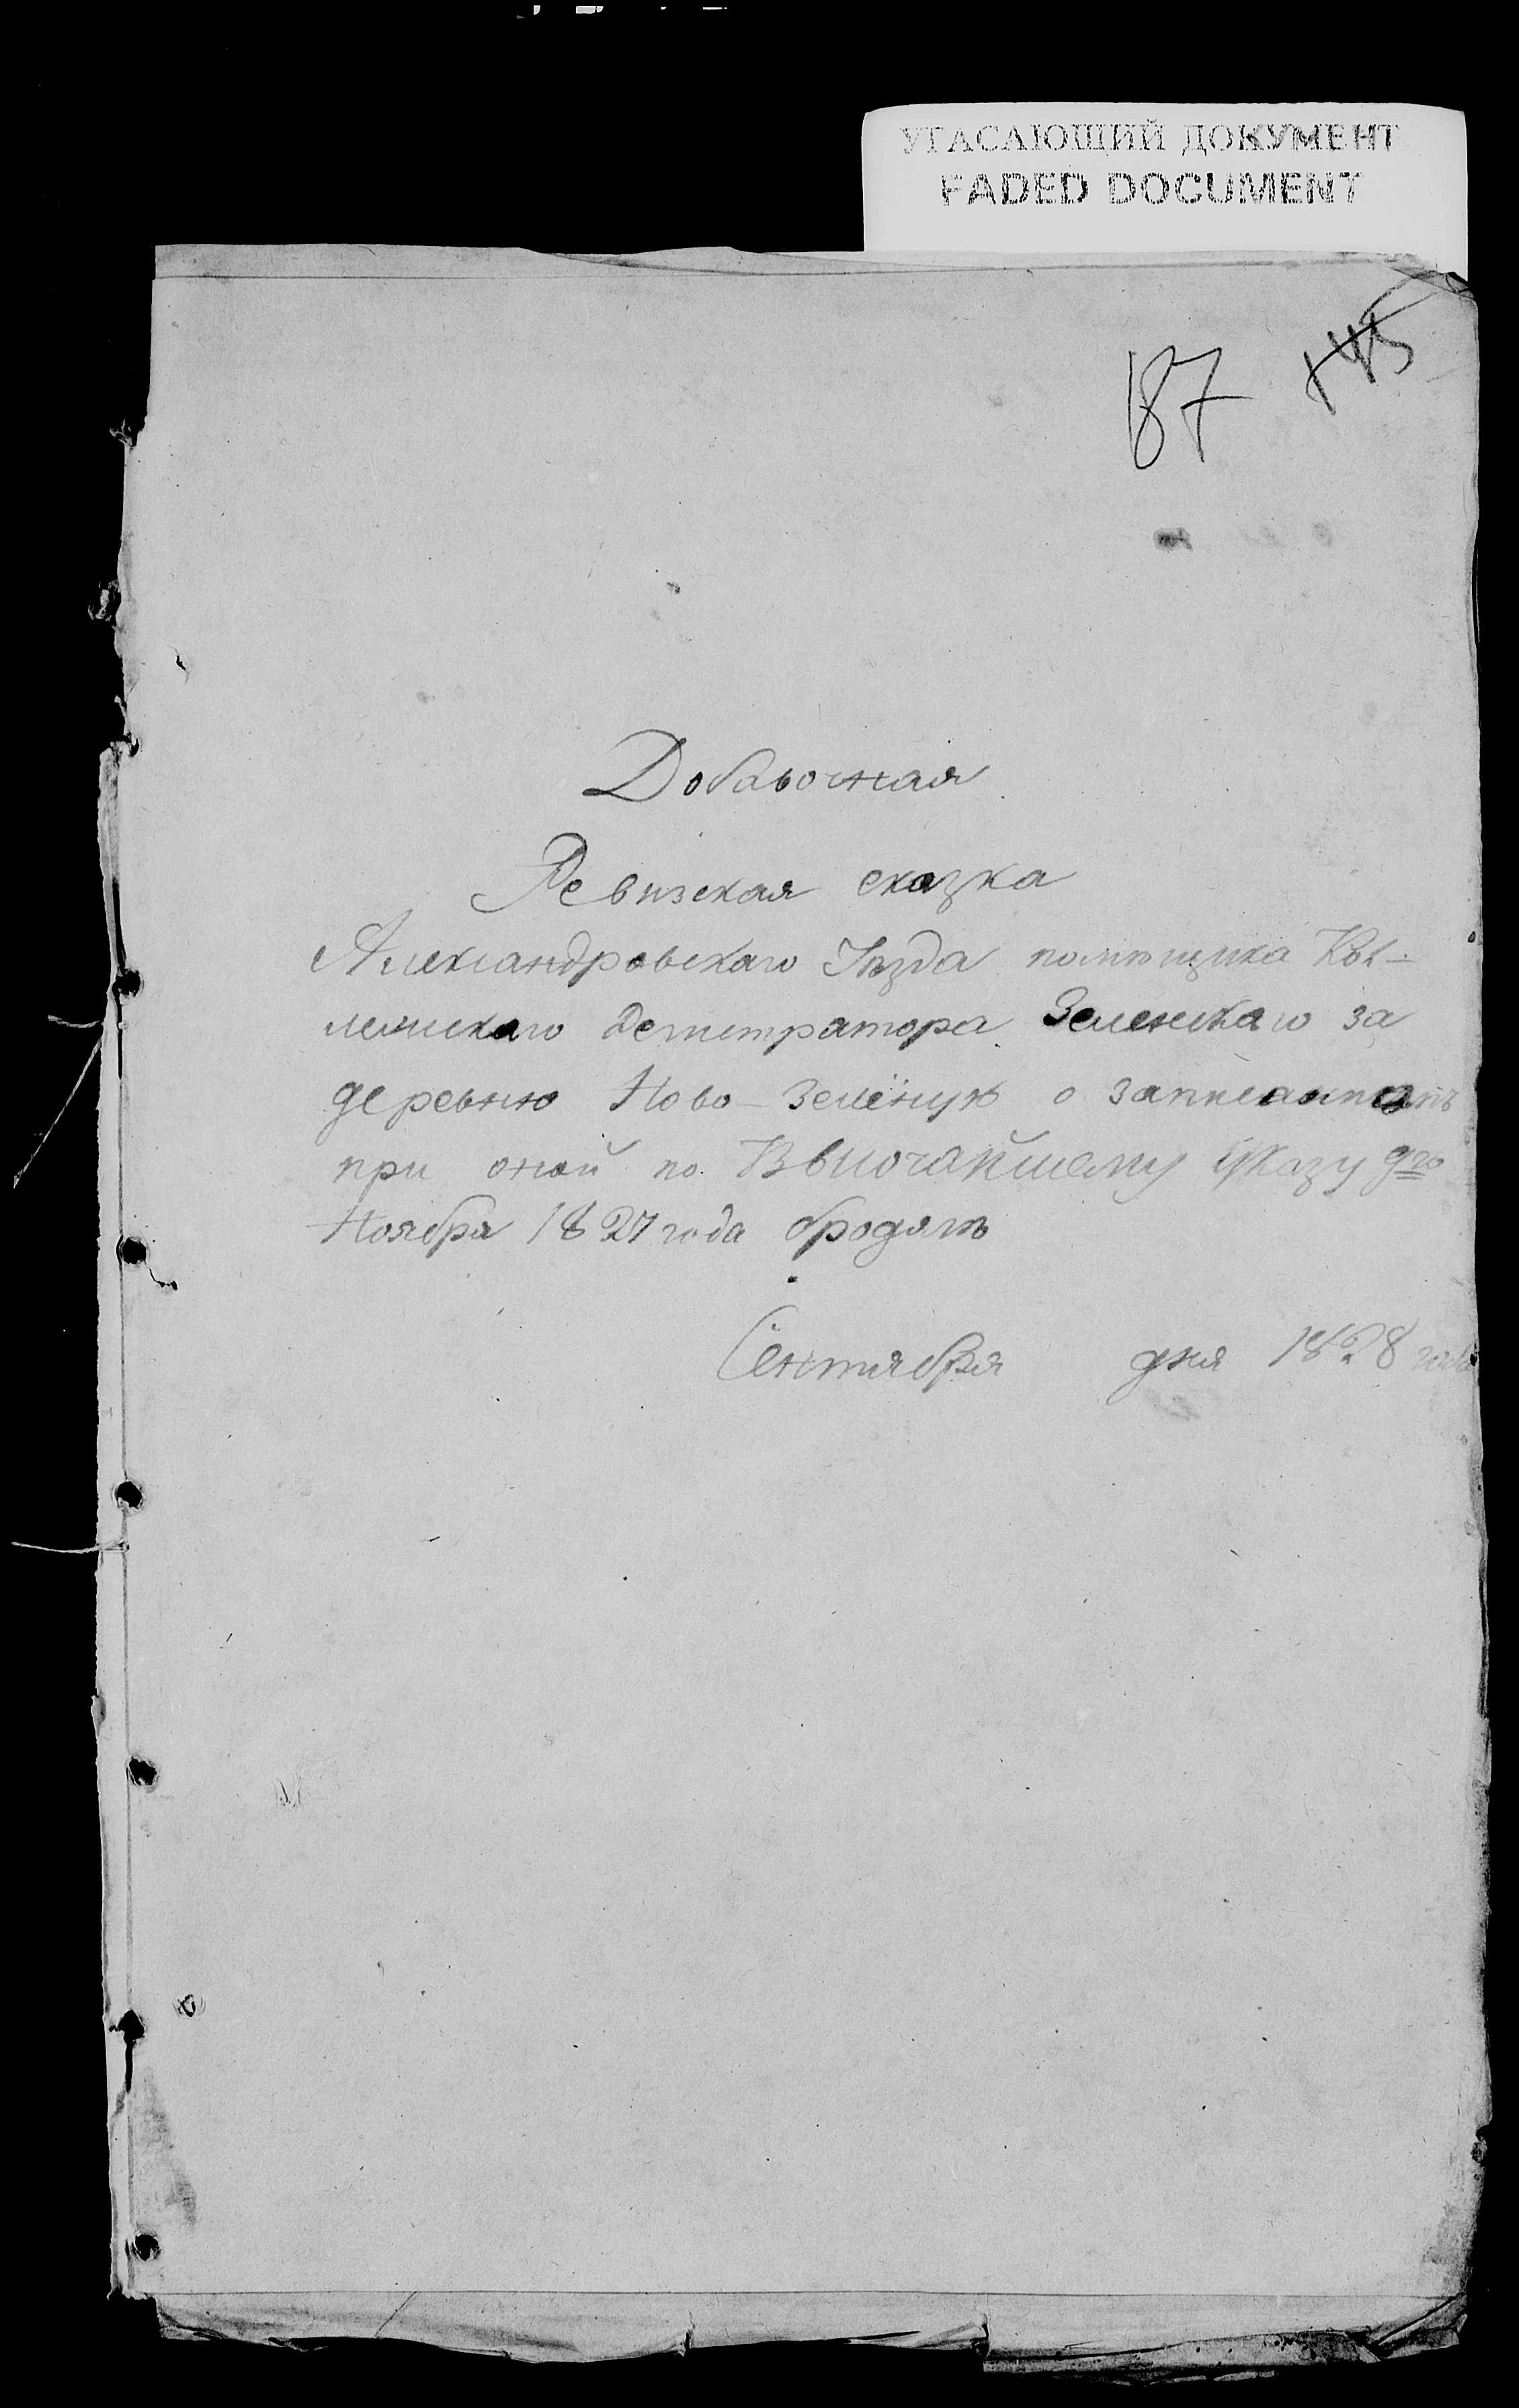 УГАСАЮЩИЙ ДОКУМЕНТ
FADED DOCUMENT
187 145
Добавочная
Ревизская сказка
Александровскаго Уѣзда помѣщика Кол-
лежскаго Регистратора Зеленскаго за
деревню Ново-Зелёную о записанныхъ
при оной по Высочайшему Указу 9го
Ноября 1827 года бродягъ
Сентября дня 1828 года